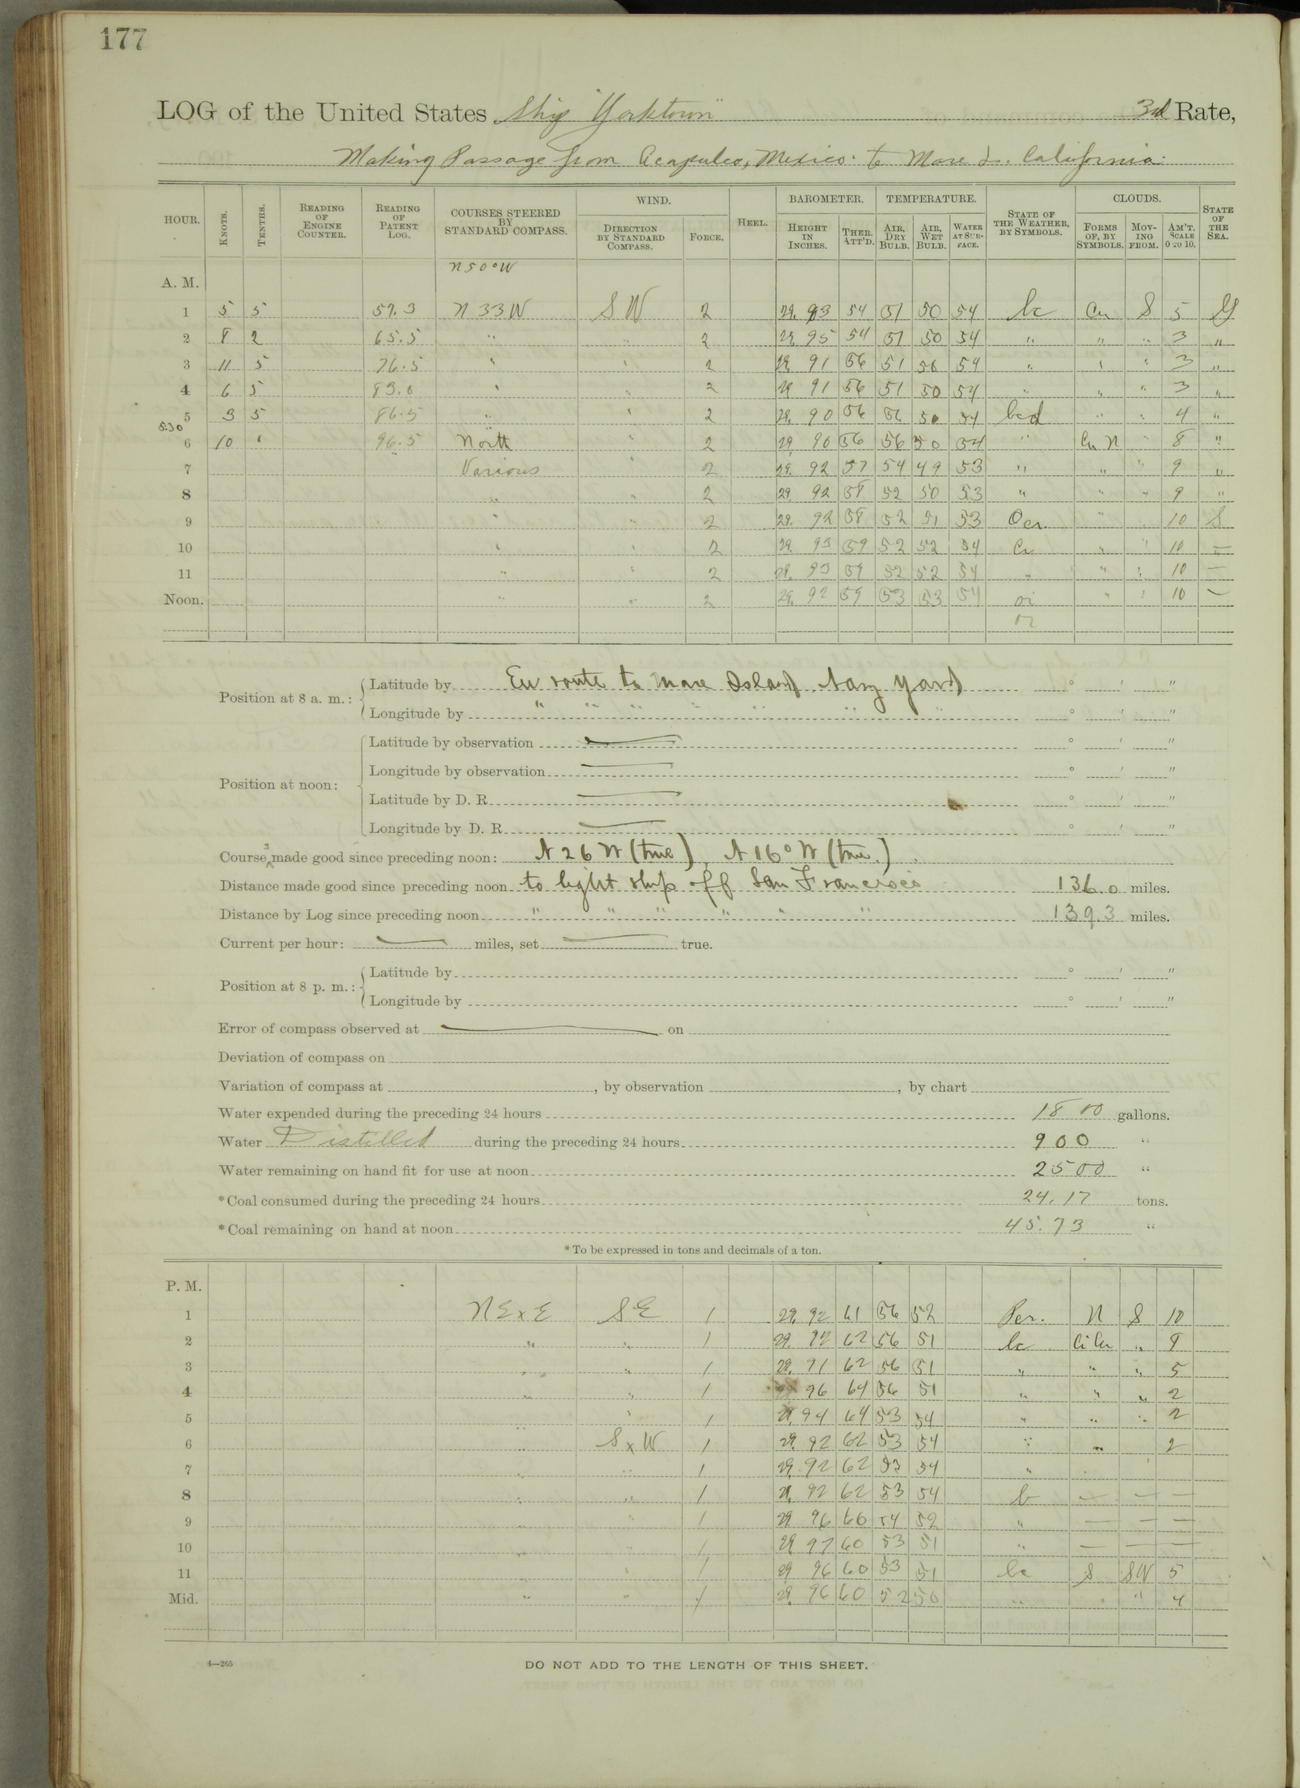 177
LOG of the United States Ship "Yorktown" 3rd Rate,
Making Passage from Acapulco, Mexico to Mare Is. California.
HOUR. KNOTS. TENTHS. READING OF ENGINE COUNTER. READING OF PATENT LOG. COURSES STEERED BY STANDARD COMPASS. WIND. DIRECTION BY STANDARD COMPASS. FORCE. HEEL. BAROMETER. HEIGHT IN INCHES. THER. ATT'D. TEMPERATURE. AIR, DRY BULB. AIR, WET BULB. WATER AT SURFACE. STATE OF THE WEATHER, BY SYMBOLS. CLOUDS. FORMS OF, BY SYMBOLS. MOVING FROM. AM'T. SCALE 0 TO 10. STATE OF THE SEA.
N50°W
A. M.
1 5 5 57.3 N 33 W SW 2 29.93 54 51 50 54 bc Cu S 5 G
2 8 2 65.5 " " 2 29.95 54 51 50 54 " " " 3 "
3 11 5 76.5 " " 2 29 91 56 51 50 54 " " " 3 "
4 6 5 83.0 " " 2 29 91 56 51 50 54 " " " 3 "
5 3 5 86.5 " " 2 29. 90 56 56 50 54 bcd " " 4 "
5:30
6 10 " 96.5 North " 2 29. 90 56 56 50 54 " Cu N " 8 "
7 Various " 2 29. 92 57 54 49 53 " " " 9 "
8 " " 2 29. 92 58 52 50 53 " " " 9 "
9 " " 2 29. 92 58 52 51 53 Ocr. " " 10 S
10 " " 2 29. 93 59 52 52 54 " " 10 —
11 " " 2 29. 93 59 52 52 54 " " " 10 —
Noon. " " 2 29. 92 59 53 53 54 " " 10 —
Position at 8 a. m.: Latitude by En route to Mare Island Navy Yard ° ' "
Longitude by " " " " " " " ° ' "
Position at noon: Latitude by observation — ° ' "
Longitude by observation — ° ' "
Latitude by D. R. — ° ' "
Longitude by D. R. — ° ' "
Courses made good since preceding noon: N 26 W (true), N 16° W (true.)
Distance made good since preceding noon to light ship off San Francisco 136.0 miles.
Distance by Log since preceding noon " " " " " " 139.3 miles.
Current per hour: — miles, set — true.
Position at 8 p. m.: Latitude by ° ' "
Longitude by ° ' "
Error of compass observed at — on
Deviation of compass on
Variation of compass at , by observation , by chart
Water expended during the preceding 24 hours 1800 gallons.
Water Distilled during the preceding 24 hours 900 "
Water remaining on hand fit for use at noon 2500 "
*Coal consumed during the preceding 24 hours 24.17 tons.
*Coal remaining on hand at noon 45.73 "
*To be expressed in tons and decimals of a ton.
P. M.
1 NExE SE 1 29. 92 61 56 52 N S 10
2 " " 1 29. 92 62 56 51 bc Ci Cu " 9
3 " " 1 29. 91 62 56 51 " " " 5
4 " " 1 96 64 56 51 " " " 2
5 " " 1 29. 94 64 53 54 " " " 2
6 " SxW 1 29. 92 62 53 54 " " 2
7 " " 1 29. 92 62 53 54 "
8 " " 1 29. 92 62 53 54 b — — —
9 " " 1 29. 96 60 54 52 " — — —
10 " " 1 29 97 60 53 51 " — — —
11 " " 1 29 96 60 53 51 bc S SW 5
Mid. " " 1 29. 96 60 52 50 " " " 4
4—265
DO NOT ADD TO THE LENGTH OF THIS SHEET.